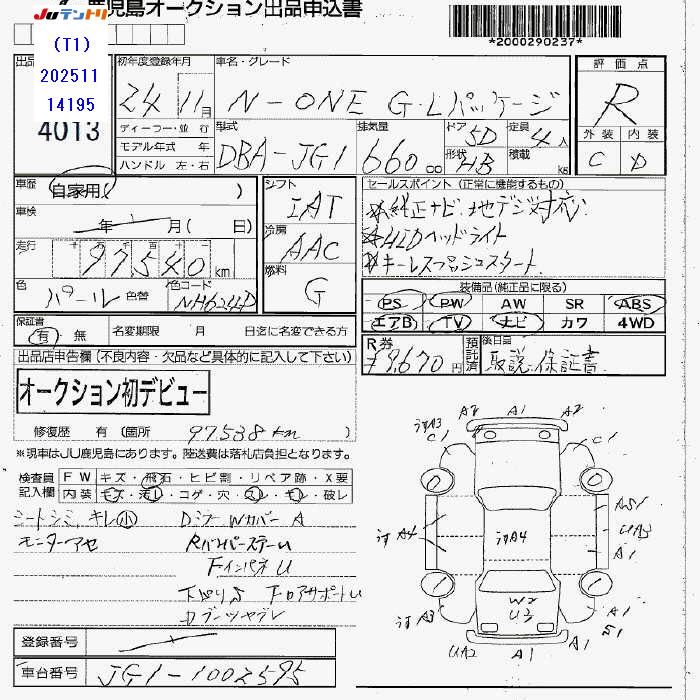 JUテントリ
鹿児島オークション出品申込書
*2000290237*
(T1)
202511
14195
4013
初年度登録年月
24 11月
車名・グレード
N-ONE G・Lパッケージ
評価点
R
外装 内装
C D
ディーラー・並行
モデル年式 年
ハンドル 左・右
型式
DBA-JG1
排気量
660 cc
ドア 5D
形状 HB
定員 4人
積載 kg
車歴 自家用( )
車検 年 月( 日)
走行 97540 km
色 パール 色替
色コード NH624P
シフト
IAT
冷房
AAC
燃料
G
セールスポイント (正常に機能するもの)
☆純正ナビ・地デジ対応
☆HIDヘッドライト
☆キーレスプッシュスタート
装備品(純正品に限る)
PS PW AW SR ABS
エアB TV ナビ カワ 4WD
保証書
有 無
名変期限 月 日迄に名変できる方
R券
¥9,670円
預託済
後日品
取説、保証書
出品店申告欄(不良内容・欠品など具体的に記入して下さい)
オークション初デビュー
修復歴 有 (箇所 97538km
※現車はJU鹿児島にあります。陸送費は落札店負担となります。
検査員記入欄
FW キズ・飛石・ヒビ割・リペア跡・X要
内装 キズ・汚レ・コゲ・穴・スレ・キレ・破レ
シートシミ、キレ小
DミラーWカバーA
モニターアセ
RバンパーステーU
FインパネU
下廻りS FロアサポートU
Dブーツヤブレ
A2 A1 A2
リカA3
C1 C1
0 0
リカA4
リカA4
A51
UA3
A1
1 1
W2
U3
リカA3
UA2
A1
A1
A1
S1
登録番号
車台番号 JG1-1002595